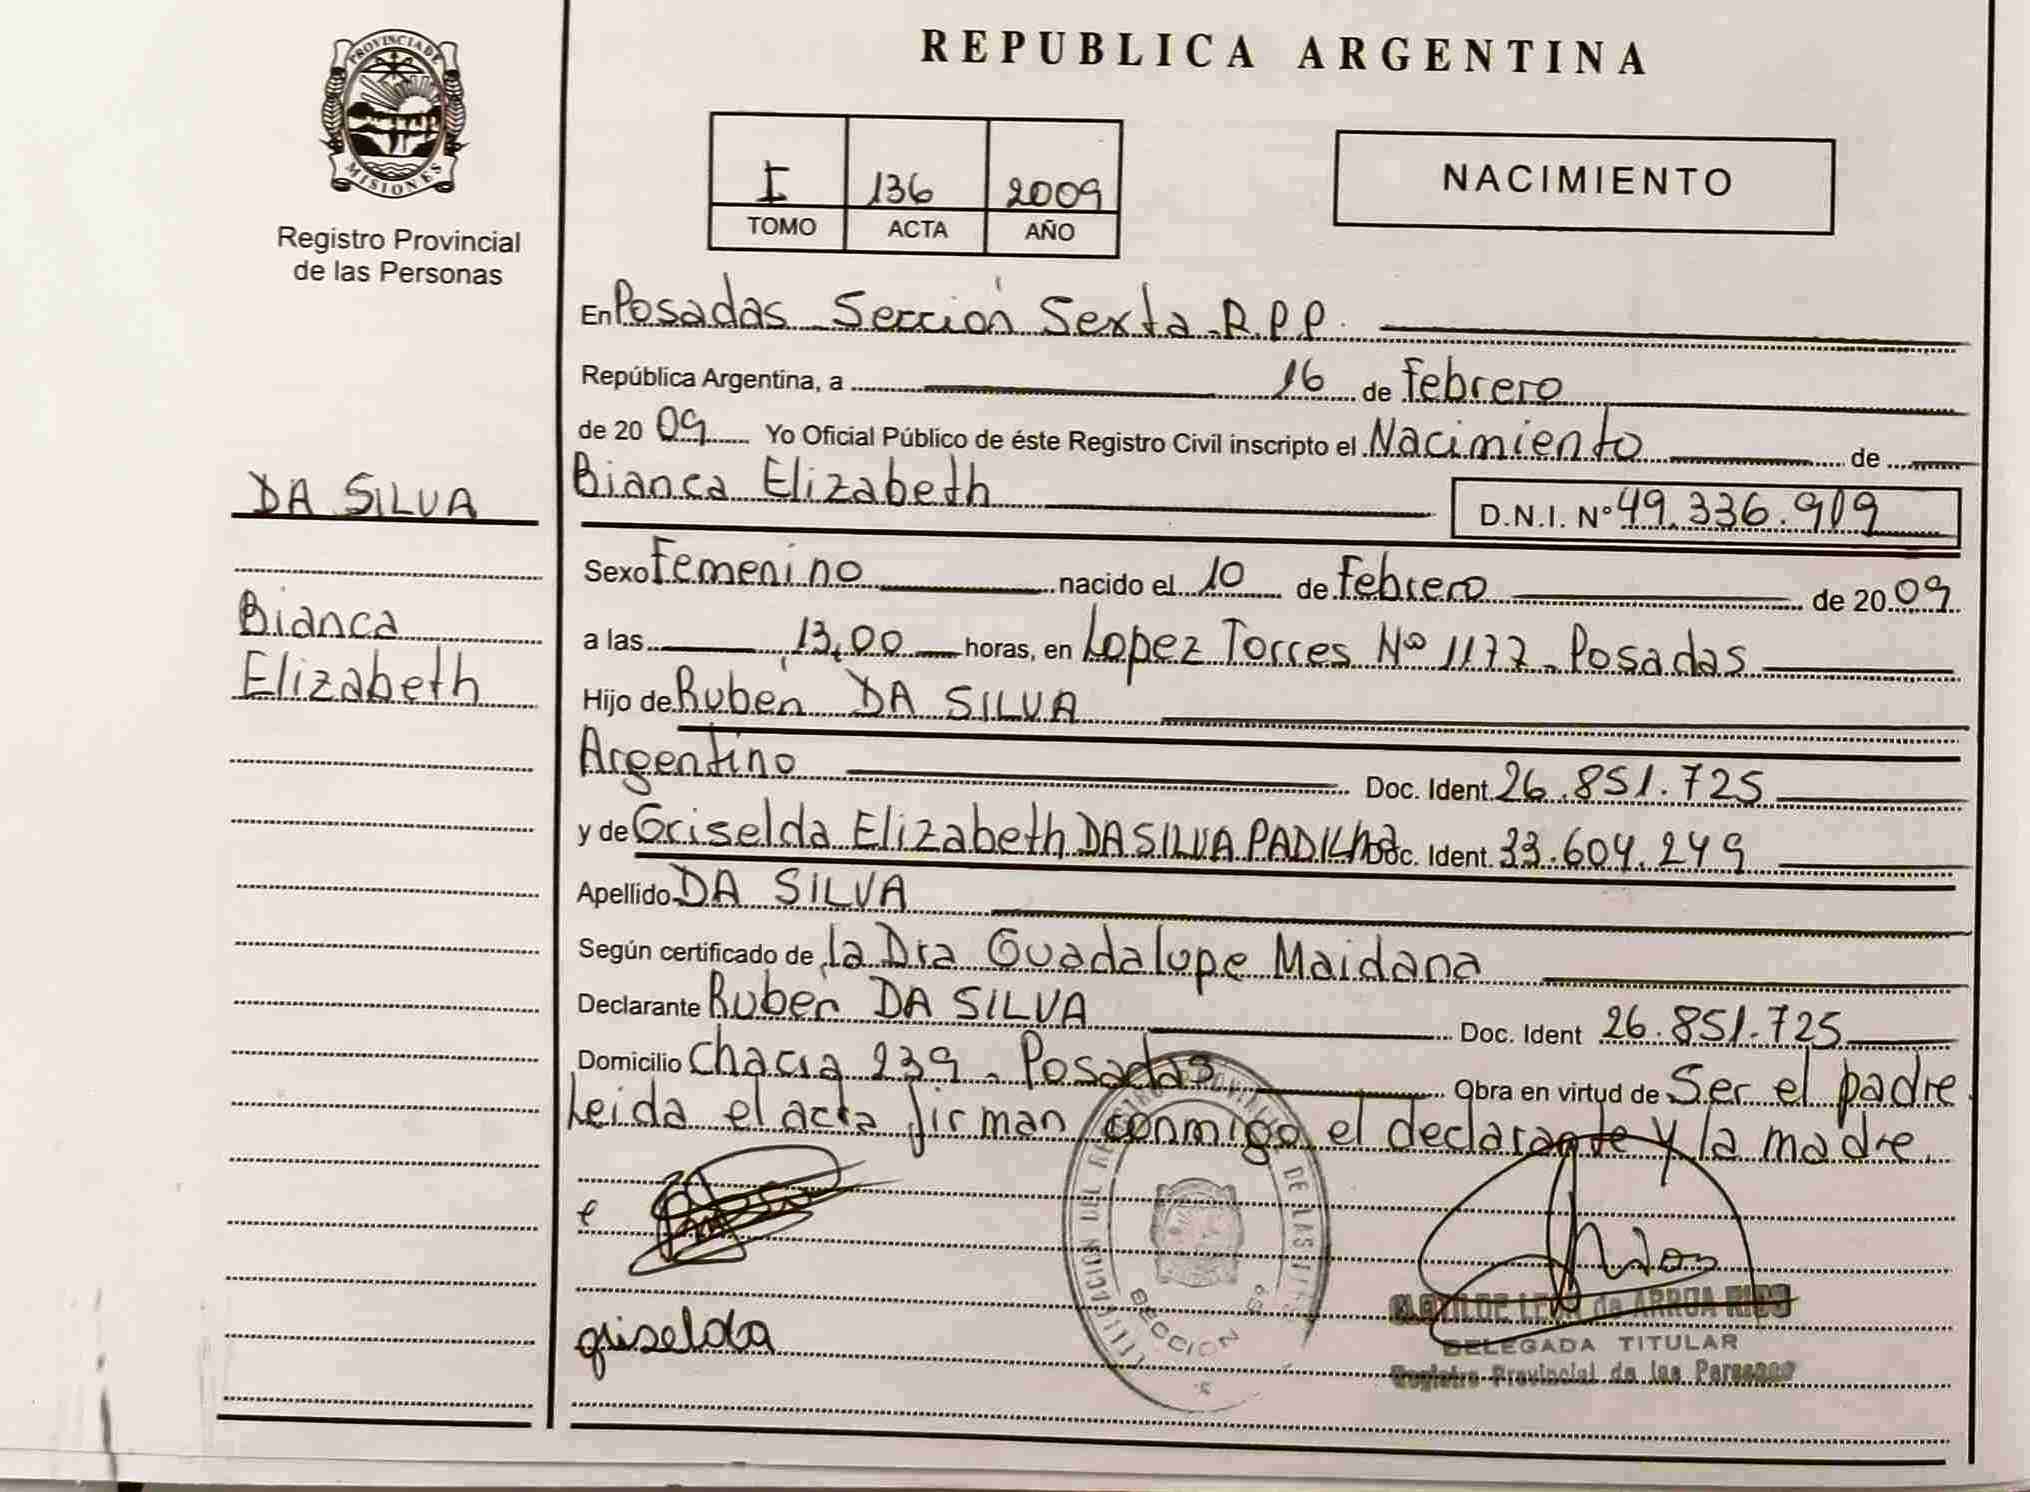 PROVINCIA DE
MISIONES
Registro Provincial
de las Personas
DA SILVA
Bianca
Elizabeth
REPUBLICA ARGENTINA
I 136 2009
TOMO ACTA AÑO
NACIMIENTO
En Posadas Sección Sexta. R.P.P.
República Argentina, a 16 de Febrero
de 20 09 Yo Oficial Público de éste Registro Civil inscripto el Nacimiento de
Bianca Elizabeth D.N.I. Nº 49.336.909
Sexo Femenino nacido el 10 de Febrero de 20 09
a las 13,00 horas, en Lopez Torres Nº 1177. Posadas
Hijo de Rubén DA SILVA
Argentino Doc. Ident. 26.851.725
y de Griselda Elizabeth DA SILVA PADILHA Doc. Ident. 33.604.249
Apellido DA SILVA
Según certificado de la Dra Guadalupe Maidana
Declarante Rubén DA SILVA Doc. Ident 26.851.725
Domicilio Chacra 239. Posadas Obra en virtud de Ser el padre
Leida el acta firman conmigo el declarante y la madre.
griselda
SECCION
CLOTILDE LEIVA de ARRUA RIOS
DELEGADA TITULAR
Registro Provincial de las Personas